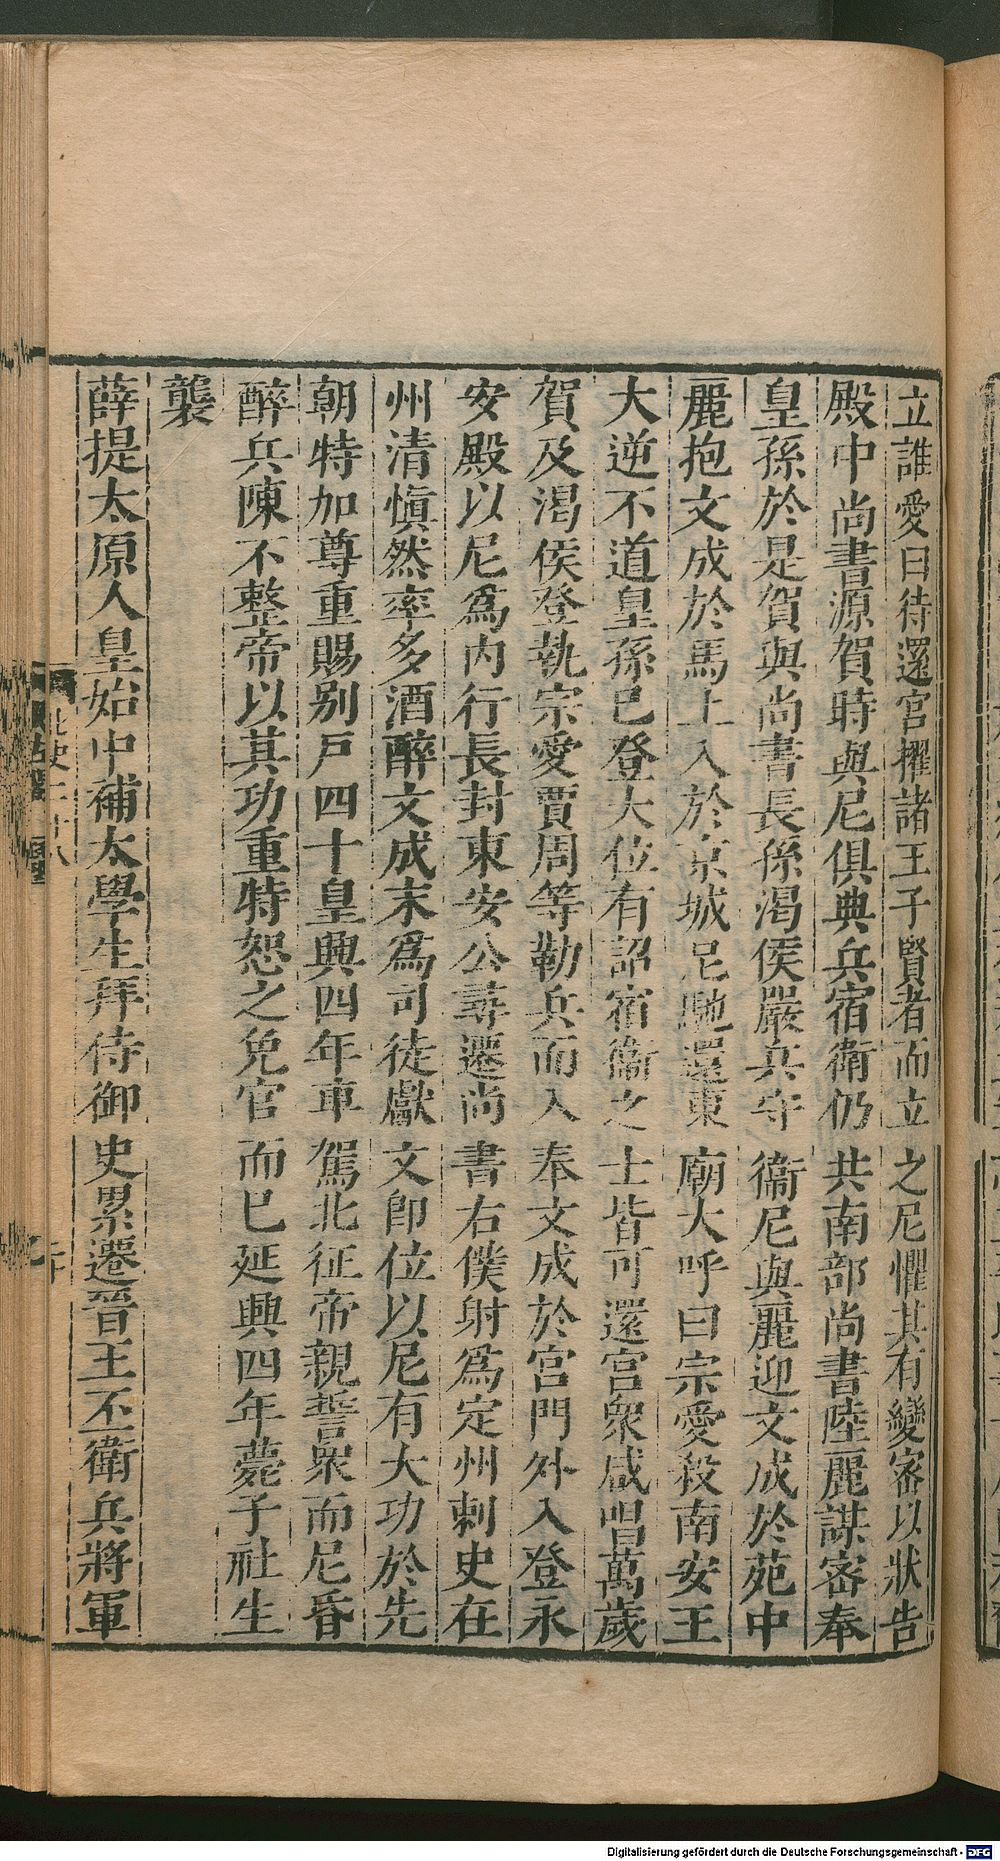 立誰愛曰待還宮擢諸王子賢者而立之尼懼其有變密以狀告
殿中尚書源賀時與尼俱典兵宿衛仍共南部尚書陸麗謀密奉
皇孫於是賀與尚書長孫渴侯嚴兵守衞尼與麗迎文成於苑中
麗抱文成於馬上入於京城尼馳還東廟大呼曰宗愛殺南安王
大逆不道皇孫已登大位有詔宿衞之士皆可還宮衆咸唱萬歲
賀及渴侯登執宗愛賈周等勒兵而入奉文成於宮門外入登永
安殿以尼爲內行長封東安公尋遷尚書右僕射爲定州刺史在
州清愼然率多酒醉文成末爲司徒獻文即位以尼有大功於先
朝特加尊重賜别戸四十皇興四年車駕北征帝親誓衆而尼昏
醉兵陳不整帝以其功重特恕之免官而已延興四年薨子社生
襲
薛提太原人皇始中補太學生拜侍御史累遷晉王丕衛兵將軍
北史二十八
Digitalisierung gefördert durch die Deutsche Forschungsgemeinschaft - DFG